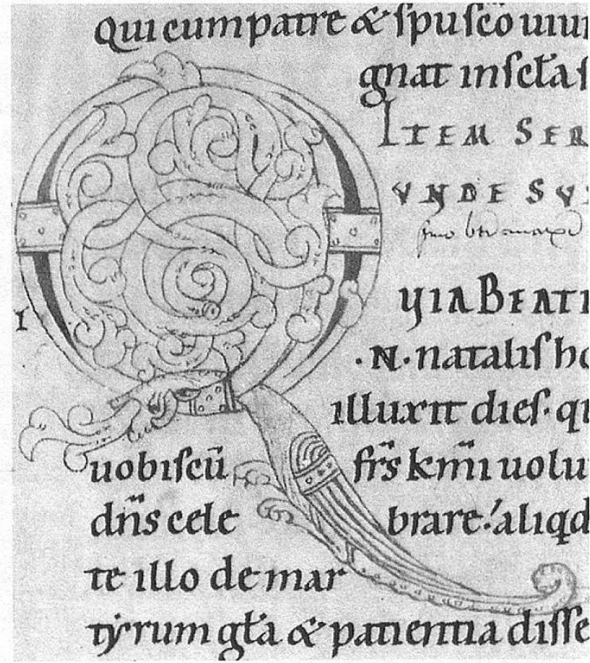 Qui cum patre & spu scō uiui
gnat in scła s
ITEM SER
VNDE SV
YIA BEATI
I
·N· natalis ho
illuxit dies· qu
uobiscū frs̄ km̄i uolu
dn̄s cele brare· aliqd
te illo de mar
tẏrum gła & patientia disse